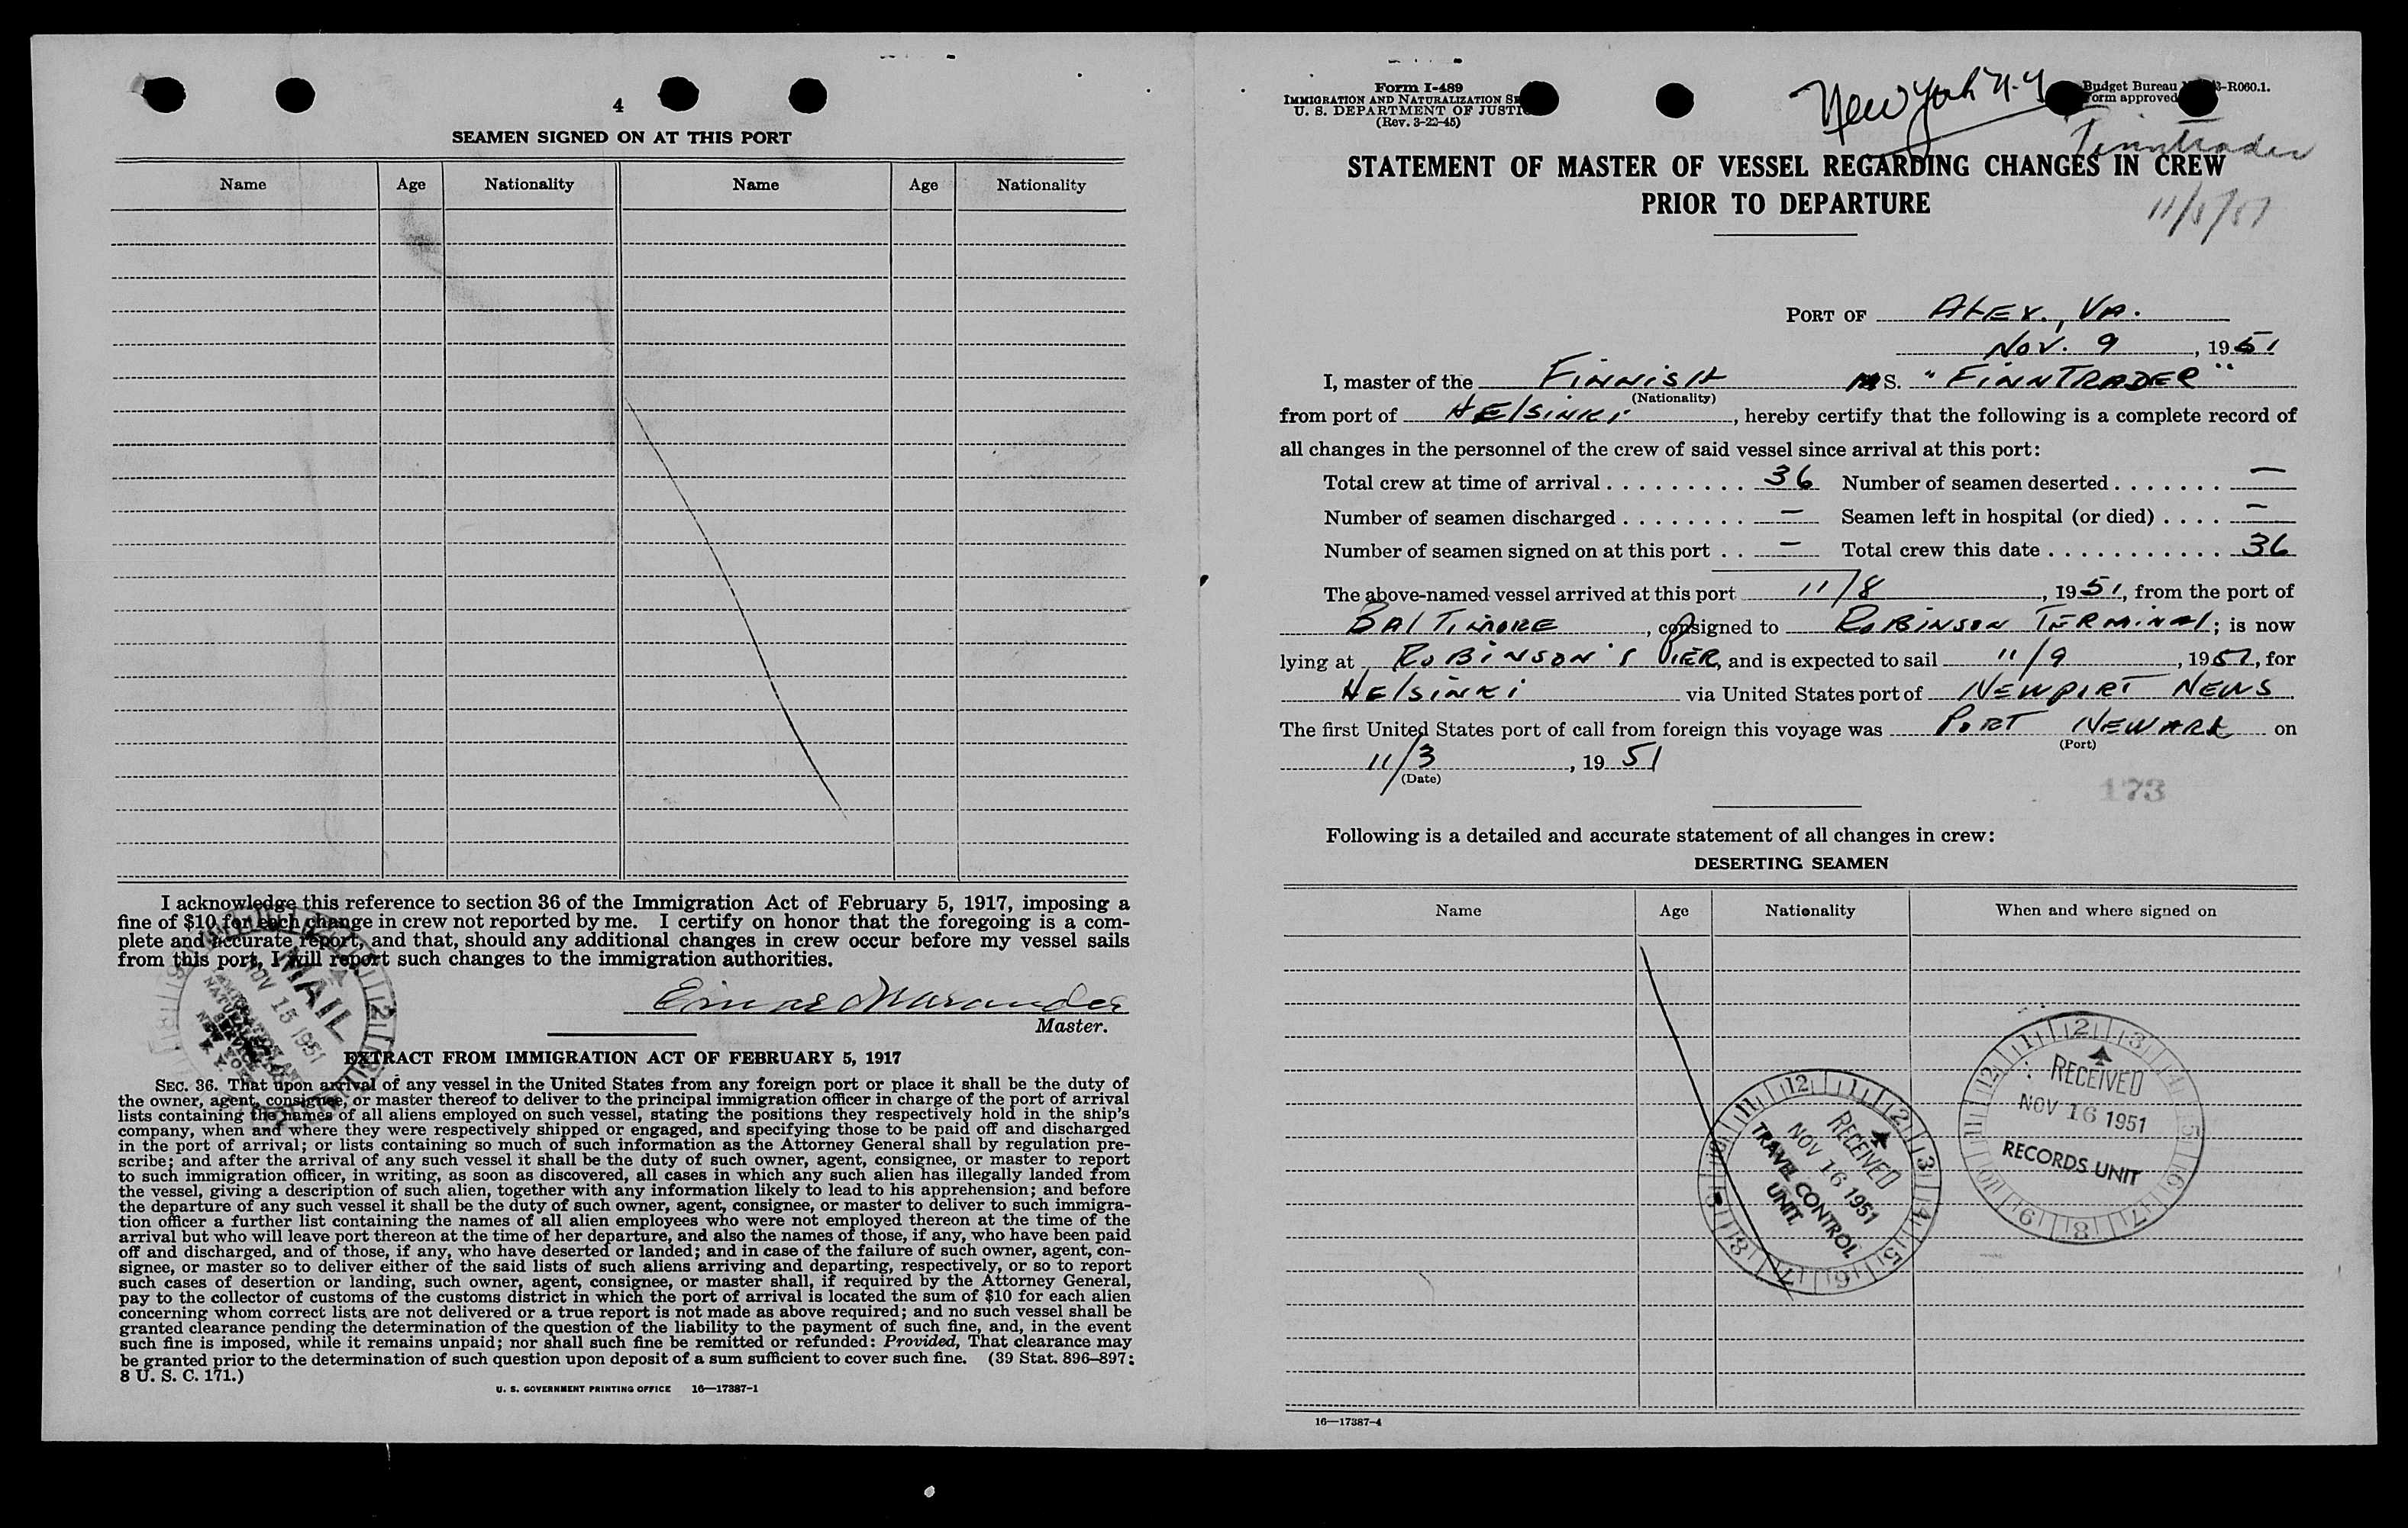 4
SEAMEN SIGNED ON AT THIS PORT
Name Age Nationality Name Age Nationality
I acknowledge this reference to section 36 of the Immigration Act of February 5, 1917, imposing a
fine of $10 for each change in crew not reported by me. I certify on honor that the foregoing is a com-
plete and accurate report, and that, should any additional changes in crew occur before my vessel sails
from this port, I will report such changes to the immigration authorities.
MAIL
NOV 15 1951
IMMIGRATION AND
NATURALIZATION
SERVICE
NEW YORK
N. Y.
Master.
EXTRACT FROM IMMIGRATION ACT OF FEBRUARY 5, 1917
SEC. 36. That upon arrival of any vessel in the United States from any foreign port or place it shall be the duty of
the owner, agent, consignee, or master thereof to deliver to the principal immigration officer in charge of the port of arrival
lists containing the names of all aliens employed on such vessel, stating the positions they respectively hold in the ship's
company, when and where they were respectively shipped or engaged, and specifying those to be paid off and discharged
in the port of arrival; or lists containing so much of such information as the Attorney General shall by regulation pre-
scribe; and after the arrival of any such vessel it shall be the duty of such owner, agent, consignee, or master to report
to such immigration officer, in writing, as soon as discovered, all cases in which any such alien has illegally landed from
the vessel, giving a description of such alien, together with any information likely to lead to his apprehension; and before
the departure of any such vessel it shall be the duty of such owner, agent, consignee, or master to deliver to such immigra-
tion officer a further list containing the names of all alien employees who were not employed thereon at the time of the
arrival but who will leave port thereon at the time of her departure, and also the names of those, if any, who have been paid
off and discharged, and of those, if any, who have deserted or landed; and in case of the failure of such owner, agent, con-
signee, or master so to deliver either of the said lists of such aliens arriving and departing, respectively, or so to report
such cases of desertion or landing, such owner, agent, consignee, or master shall, if required by the Attorney General,
pay to the collector of customs of the customs district in which the port of arrival is located the sum of $10 for each alien
concerning whom correct lists are not delivered or a true report is not made as above required; and no such vessel shall be
granted clearance pending the determination of the question of the liability to the payment of such fine, and, in the event
such fine is imposed, while it remains unpaid; nor shall such fine be remitted or refunded: Provided, That clearance may
be granted prior to the determination of such question upon deposit of a sum sufficient to cover such fine. (39 Stat. 896–897;
8 U. S. C. 171.)
U. S. GOVERNMENT PRINTING OFFICE 16—17387-1
Form I-489
IMMIGRATION AND NATURALIZATION
U. S. DEPARTMENT OF
(Rev. 3-22-45)
New York N.Y
Budget Bureau -R060.1.
Form approved
Finntrader
STATEMENT OF MASTER OF VESSEL REGARDING CHANGES IN CREW
PRIOR TO DEPARTURE
PORT OF ALEX., VA.
NOV. 9, 1951
I, master of the FINNISH MS. "FINNTRADER"
(Nationality)
from port of HELSINKI, hereby certify that the following is a complete record of
all changes in the personnel of the crew of said vessel since arrival at this port:
Total crew at time of arrival . . . . . . . . . 36 Number of seamen deserted . . . . . . . —
Number of seamen discharged . . . . . . . . — Seamen left in hospital (or died) . . . . —
Number of seamen signed on at this port . . — Total crew this date . . . . . . . . . . . 36
The above-named vessel arrived at this port 11/8, 1951, from the port of
BALTIMORE, consigned to ROBINSON TERMINAL; is now
lying at ROBINSON'S PIER, and is expected to sail 11/9, 1951, for
HELSINKI via United States port of NEWPORT NEWS
The first United States port of call from foreign this voyage was PORT NEWARK on
(Port)
11/3, 1951
(Date)
173
Following is a detailed and accurate statement of all changes in crew:
DESERTING SEAMEN
Name Age Nationality When and where signed on
RECEIVED
NOV 16 1951
TRAVEL CONTROL
UNIT
RECEIVED
NOV 16 1951
RECORDS UNIT
16—17387-4